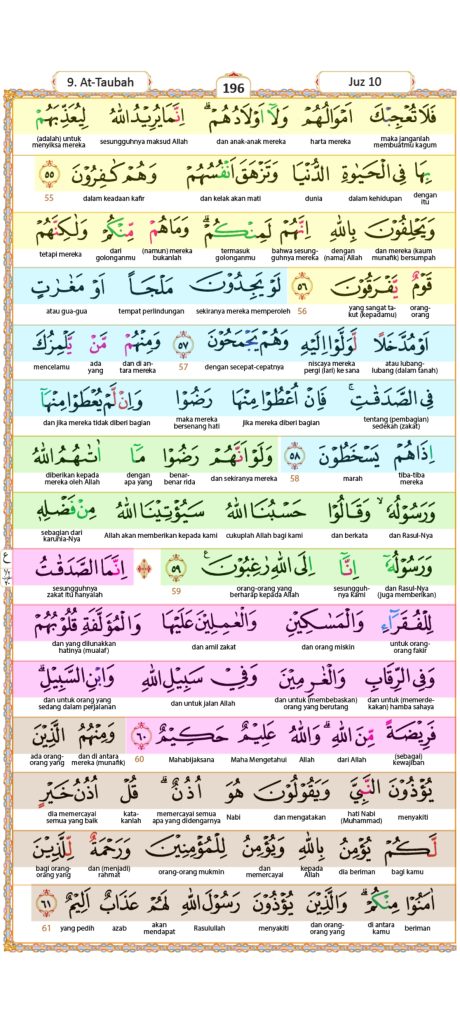 9. At-Taubah
196
Juz 10
فَلَا تُعْجِبْكَ اَمْوَالُهُمْ وَلَآ اَوْلَادُهُمْ ۗاِنَّمَا يُرِيْدُ اللّٰهُ لِيُعَذِّبَهُمْ
maka janganlah membuatmu kagum harta mereka dan anak-anak mereka sesungguhnya maksud Allah (adalah) untuk menyiksa mereka
بِهَا فِى الْحَيٰوةِ الدُّنْيَا وَتَزْهَقَ اَنْفُسُهُمْ وَهُمْ كٰفِرُوْنَ ٥٥
dengan itu dalam kehidupan dunia dan kelak akan mati dalam keadaan kafir 55
وَيَحْلِفُوْنَ بِاللّٰهِ اِنَّهُمْ لَمِنْكُمْ ۗوَمَا هُمْ مِّنْكُمْ وَلٰكِنَّهُمْ
dan mereka (kaum munafik) bersumpah dengan (nama) Allah bahwa sesungguhnya mereka termasuk golonganmu (namun) mereka bukanlah dari golonganmu tetapi mereka
قَوْمٌ يَّفْرَقُوْنَ ٥٦ لَوْ يَجِدُوْنَ مَلْجَاً اَوْ مَغٰرٰتٍ
orang-orang yang sangat takut (kepadamu) 56 sekiranya mereka memperoleh tempat perlindungan atau gua-gua
اَوْ مُدَّخَلًا لَّوَلَّوْا اِلَيْهِ وَهُمْ يَجْمَحُوْنَ ٥٧ وَمِنْهُمْ مَّنْ يَّلْمِزُكَ
atau lubang-lubang (dalam tanah) niscaya mereka pergi (lari) ke sana dengan secepat-cepatnya 57 dan di antara mereka ada yang mencelamu
فِى الصَّدَقٰتِۚ فَاِنْ اُعْطُوْا مِنْهَا رَضُوْا وَاِنْ لَّمْ يُعْطَوْا مِنْهَآ
tentang (pembagian) sedekah (zakat) jika mereka diberi bagian maka mereka bersenang hati dan jika mereka tidak diberi bagian
اِذَا هُمْ يَسْخَطُوْنَ ٥٨ وَلَوْ اَنَّهُمْ رَضُوْا مَآ اٰتٰىهُمُ اللّٰهُ
tiba-tiba mereka marah 58 dan sekiranya mereka benar-benar rida dengan apa yang diberikan kepada mereka oleh Allah
وَرَسُوْلُهٗۙ وَقَالُوْا حَسْبُنَا اللّٰهُ سَيُؤْتِيْنَا اللّٰهُ مِنْ فَضْلِهٖ
dan Rasul-Nya dan berkata cukuplah Allah bagi kami Allah akan memberikan kepada kami sebagian dari karunia-Nya
وَرَسُوْلُهٗٓ اِنَّآ اِلَى اللّٰهِ رٰغِبُوْنَ ࣖ ٥٩ اِنَّمَا الصَّدَقٰتُ
dan Rasul-Nya (juga memberikan) sesungguhnya Kami orang-orang yang berharap kepada Allah 59 sesungguhnya zakat itu hanyalah
لِلْفُقَرَاۤءِ وَالْمَسٰكِيْنِ وَالْعٰمِلِيْنَ عَلَيْهَا وَالْمُؤَلَّفَةِ قُلُوْبُهُمْ
untuk orang-orang fakir dan orang miskin dan amil zakat dan yang dilunakkan hatinya (mualaf)
وَفِى الرِّقَابِ وَالْغٰرِمِيْنَ وَفِيْ سَبِيْلِ اللّٰهِ وَابْنِ السَّبِيْلِۗ
dan untuk (memerdekakan) hamba sahaya dan untuk (membebaskan) orang yang berutang dan untuk jalan Allah dan untuk orang yang sedang dalam perjalanan
فَرِيْضَةً مِّنَ اللّٰهِ ۗوَاللّٰهُ عَلِيْمٌ حَكِيْمٌ ٦٠ وَمِنْهُمُ الَّذِيْنَ
(sebagai) kewajiban dari Allah Allah Maha Mengetahui Mahabijaksana 60 dan di antara mereka (munafik) ada orang-orang yang
يُؤْذُوْنَ النَّبِيَّ وَيَقُوْلُوْنَ هُوَ اُذُنٌ ۗقُلْ اُذُنُ خَيْرٍ
menyakiti hati Nabi (Muhammad) dan mengatakan Nabi memercayai semua apa yang didengarnya katakanlah dia memercayai semua yang baik
لَّكُمْ يُؤْمِنُ بِاللّٰهِ وَيُؤْمِنُ لِلْمُؤْمِنِيْنَ وَرَحْمَةٌ لِّلَّذِيْنَ
bagi kamu dia beriman kepada Allah dan memercayai orang-orang mukmin dan (menjadi) rahmat bagi orang-orang yang
اٰمَنُوْا مِنْكُمْۗ وَالَّذِيْنَ يُؤْذُوْنَ رَسُوْلَ اللّٰهِ لَهُمْ عَذَابٌ اَلِيْمٌ ٦١
beriman di antara kamu dan orang-orang yang menyakiti Rasulullah akan mendapat azab yang pedih 61